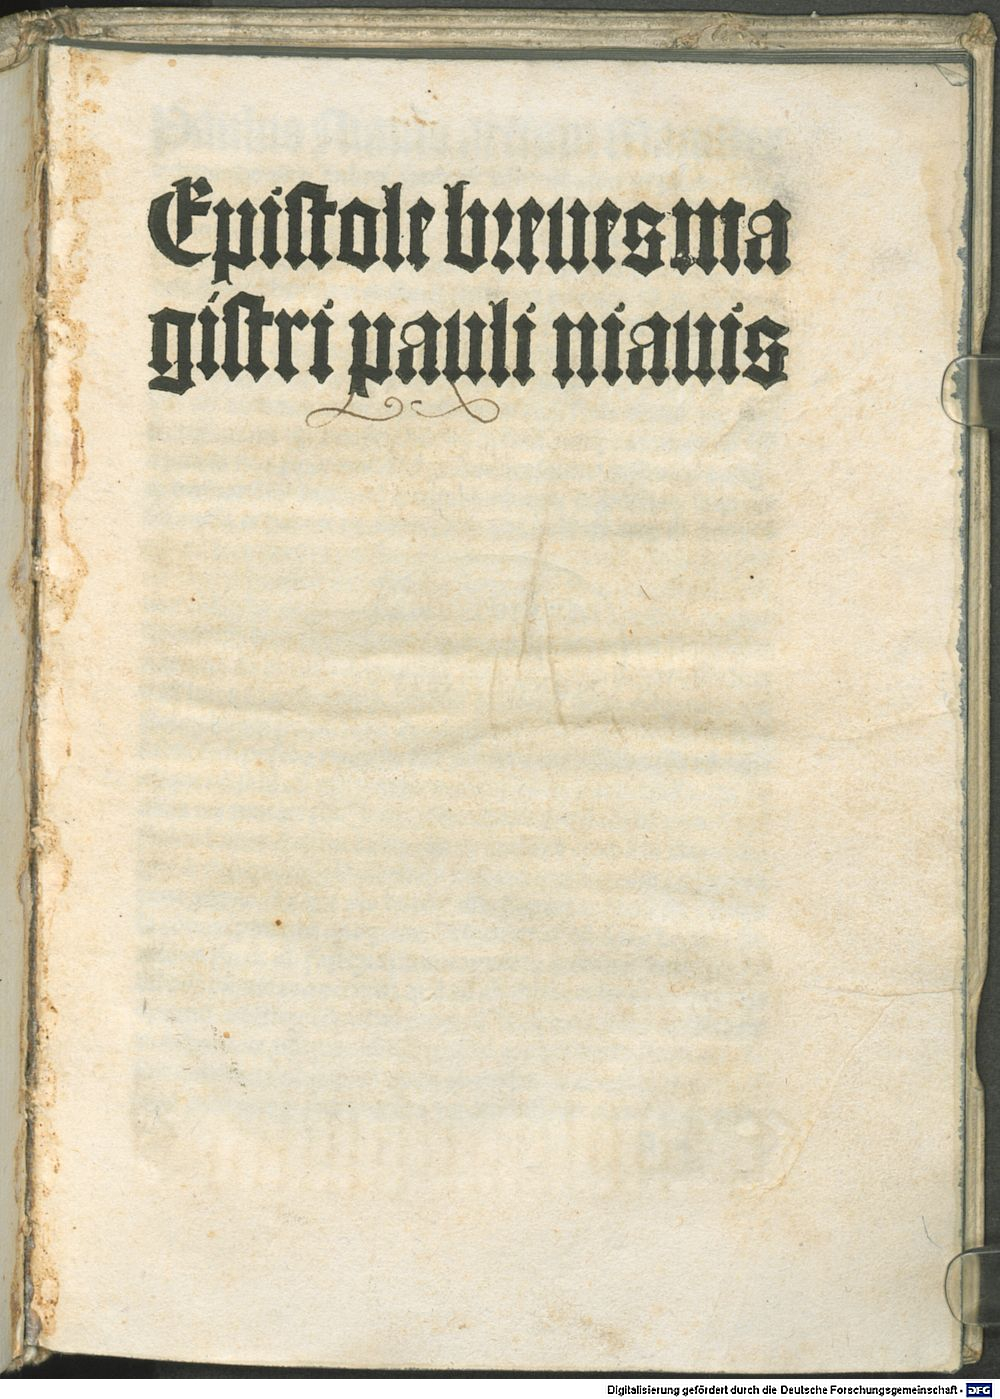 Epiſtole breues ma
giſtri pauli niauis
Digitalisierung gefördert durch die Deutsche Forschungsgemeinschaft - DFG